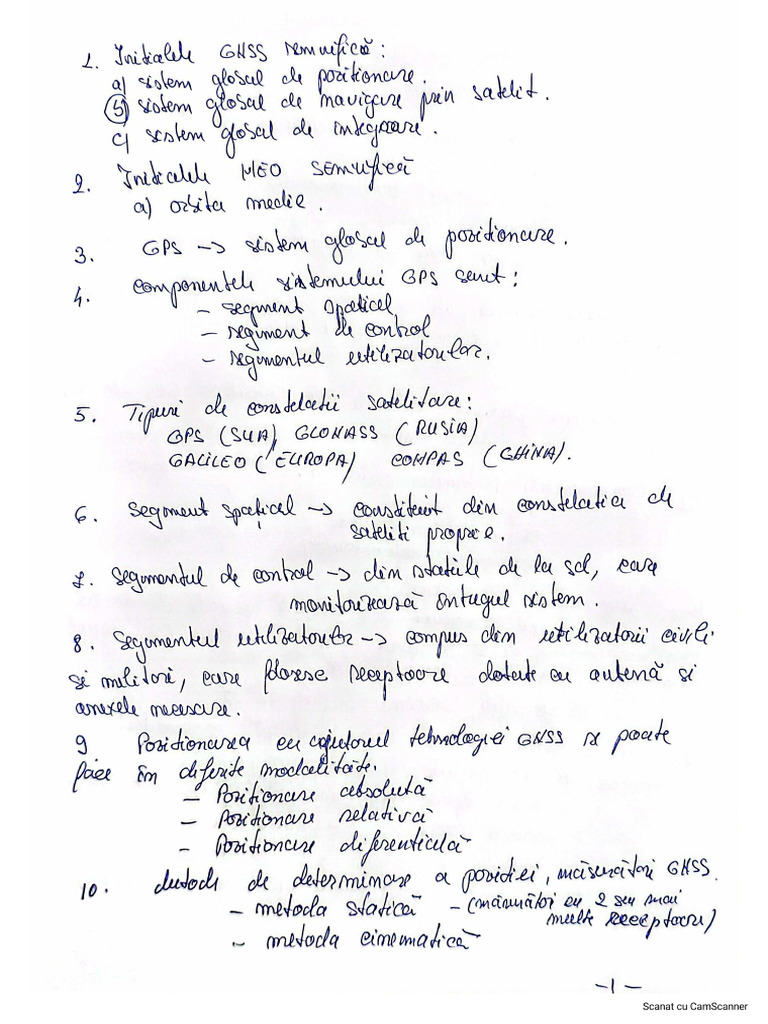 1. Initialele GNSS semnifică:
a) sistem global de positionare.
b) sistem global de navigare prin satelit.
c) sistem global de integrare.
2. Initialele MEO semnifică
a) orbita medie.
3. GPS -> sistem global de positionare.
4. Componentele sistemului GPS sunt:
- segment spatial
- segment de control
- segmentul utilizatorilor.
5. Tipuri de constelatii satelitare:
GPS (SUA), GLONASS (RUSIA)
GALILEO (EUROPA) COMPAS (CHINA).
6. Segment spațial -> constituit din constelatia de
sateliti proprie.
7. Segmentul de control -> din statiile de la sol, care
monitorizează întregul sistem.
8. Segmentul utilizatorilor -> compus din utilizatorii civili
si militari, care folosesc receptoare dotate cu antenă si
anexele necesare.
9 Positionarea cu ajutorul tehnologiei GNSS se poate
face în diferite modalitate.
- Positionare absolută
- Positionare relativă
- Positionare diferentială
10. Metode de determinare a pozitiei, măsurători GNSS.
- metoda statică - (măsurători cu 2 sau mai
multe receptoare)
- metoda cinematică
-1-
Scanat cu CamScanner